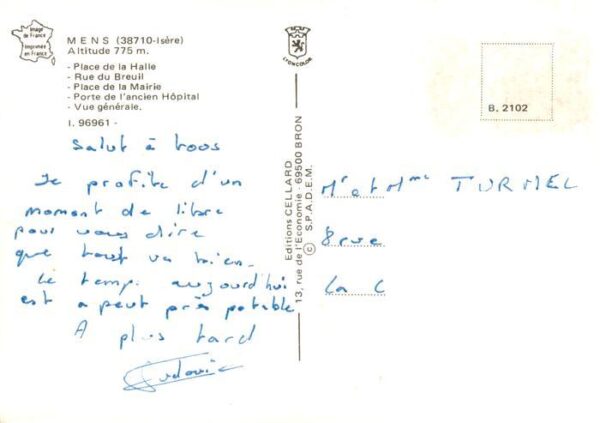 Image de France
Imprimée en France
MENS (38710-Isère)
Altitude 775 m.
- Place de la Halle
- Rue du Breuil
- Place de la Mairie
- Porte de l'ancien Hôpital
- Vue générale.
I. 96961 -
Salut à tous
Je profite d'un
moment de libre
pour vous dire
que tout va bien.
Le temp. aujourd'hui
est a peut près potable
A plus tard
Ludovic
LYONCOLOR
Editions CELLARD
13, rue de l'Economie - 69500 BRON
© S.P.A.D.E.M.
B. 2102
Mr et Mme TURMEL
8 rue
La C